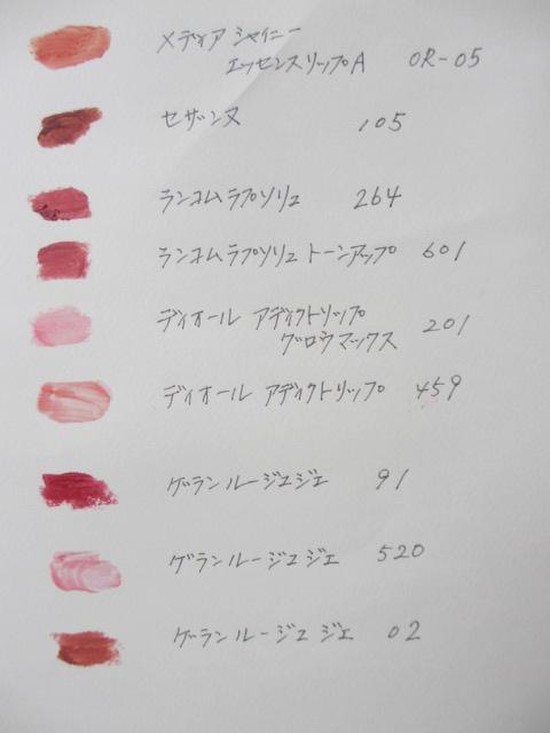 メディア シャイニー
エッセンスリップA OR-05
セザンヌ 105
ランコムラプソリュ 264
ランコムラプソリュ トーンアップ 601
ディオール アディクトリップ
グロウマックス 201
ディオール アディクトリップ 459
ゲランルージュジェ 91
ゲランルージュジェ 520
ゲランルージュ ジェ 02